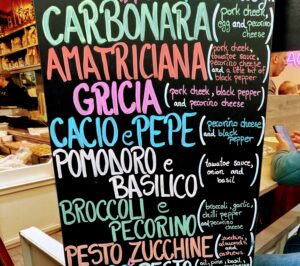 CARBONARA
(pork cheek,
egg and pecorino
cheese
AMATRICIANA
(pork cheek,
tomatoe sauce,
pecorino cheese
and a little bit of
black pepper
GRICIA
(pork cheek, black pepper
and pecorino cheese
CACIO e PEPE
(pecorino cheese
and black
pepper
POMODORO e
BASILICO
(tomatoe sauce,
onion and
basil
BROCCOLI e
PECORINO
(broccoli, garlic,
chili pepper
and pecorino
cheese
PESTO ZUCCHINE
(zucchini,
almonds
and
cashews
PESTO
oil, pine, basil,